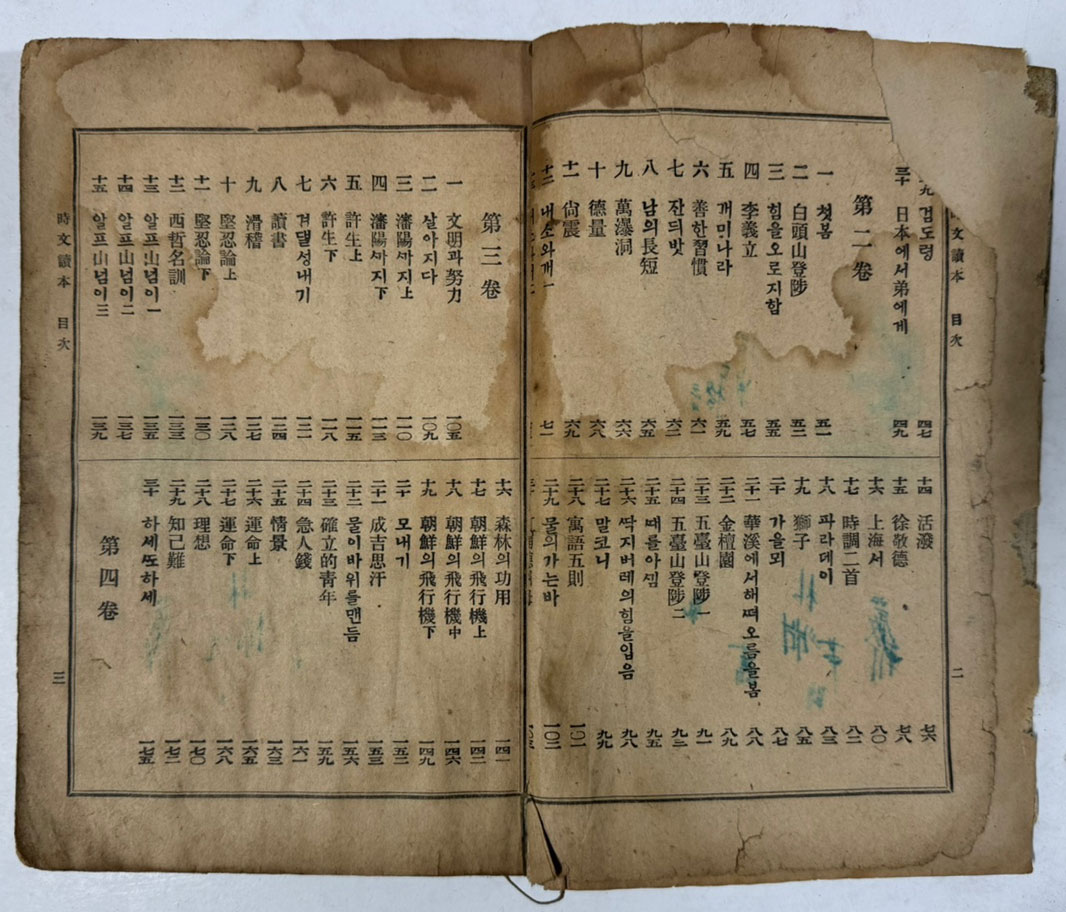 文讀本 目次
검도령 四七
三十 日本에서弟에게 四九
第二卷
一 첫봄 五一
二 白頭山登陟 五二
三 힘을오로지함 五五
四 李義立 五七
五 개미나라 五九
六 善한習慣 六一
七 잔듸밧 六二
八 남의長短 六五
九 萬瀑洞 六六
十 德量 六八
十一 尙震 六九
十二 내소와개一 七一
十四 活潑 七六
十五 徐敬德 七八
十六 上海서 八〇
十七 時調二首 八二
十八 파라데이 八三
十九 獅子 八五
二十 가을뫼 八七
二十一 華溪에서해ᄯᅥ오름을봄 八八
二十二 金檀園 八九
二十三 五臺山登陟一 九一
二十四 五臺山登陟二 九三
二十五 ᄯᅢ를아ᄭᅵᆷ 九五
二十六 ᄯᅡᆨ지버레의힘을입음 九八
二十七 말코니 九九
二十八 寓語五則 一〇一
二十九 물의가는바 一〇二
二
第三卷
一 文明과努力 一〇五
二 살아지다 一〇九
三 瀋陽ᄭᅡ지上 一一〇
四 瀋陽ᄭᅡ지下 一一三
五 許生上 一一五
六 許生下 一一八
七 견댈성내기 一二一
八 讀書 一二四
九 滑稽 一二七
十 堅忍論上 一二八
十一 堅忍論下 一三〇
十二 西哲名訓 一三三
十三 알프山넘이一 一三五
十四 알프山넘이二 一三七
十五 알프山넘이三 一三九
十六 森林의功用 一四一
十七 朝鮮의飛行機上 一四二
十八 朝鮮의飛行機中 一四六
十九 朝鮮의飛行機下 一四九
二十 모내기 一五二
二十一 成吉思汗 一五三
二十二 물이바위를맨듬 一五六
二十三 確立的靑年 一五九
二十四 急人錢 一六一
二十五 情景 一六三
二十六 運命上 一六五
二十七 運命下 一六八
二十八 理想 一七〇
二十九 知己難 一七二
三十 하세ᄯᅩ하세 一七五
第四卷
時文讀本 目次
三